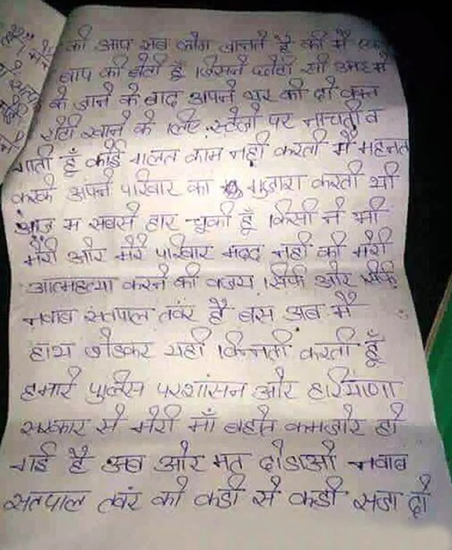 की आप सब लोग जानते है की मै एक
बाप की बेटी हूँ जिसने छोटी सी उम्र मे
के जाने के बाद अपने घर की दो वक्त
रोटी खाने के लिए स्टेजो पर नाचती व
गाती हूँ कोई गलत काम नही करती मै महनत
करके अपने परिवार का गुजारा करती थी
आज म सबसे हार चुकी हूँ किसी ने भी
मेरी और मेरे परिवार मदद नही की मेरी
आत्महत्या करने की वजय सिर्फ और सिर्फ
नवाब सतपाल तवंर है बस अब मै
हाथ जोडकर यही विनती करती हूँ
हमारे पुलिस परशासन और हरियाणा
सरकार से मेरी माँ बहोत कमजोर हो
गई है अब और मत दोडाओ नवाब
सतपाल तवंर को कडी से कडी सजा दो